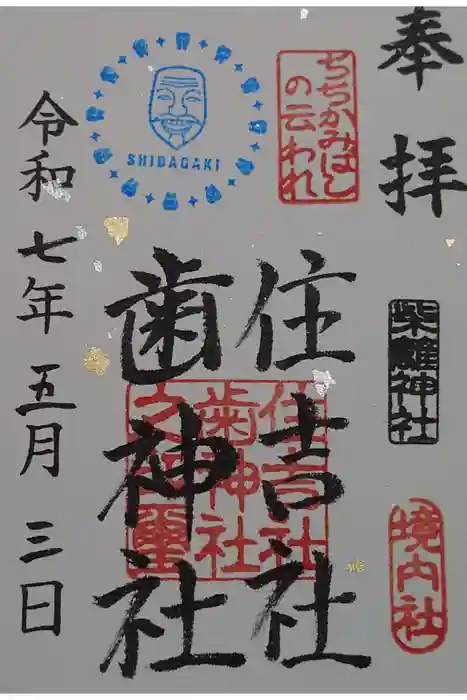 奉拝
柴籬神社
境内社
ちちかみばし
の云われ
SHIBAGAKI
住吉社
歯神社
住吉社
歯神社
之印璽
令和七年五月三日